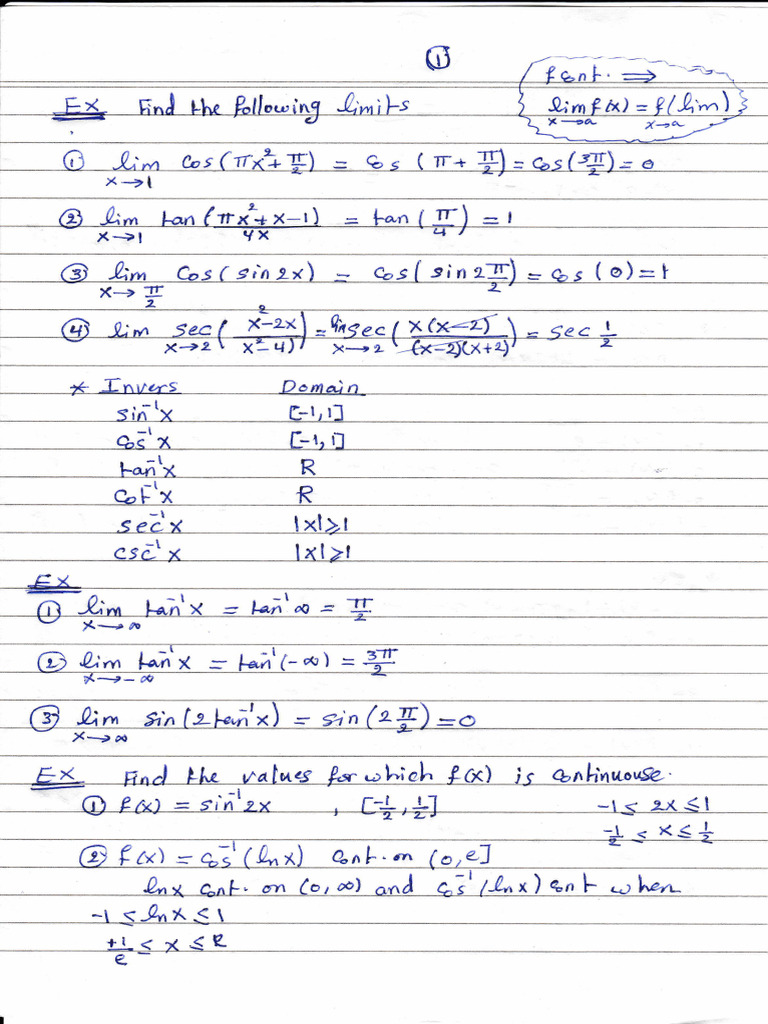 ①
f cont. ⟹
lim f(x) = f(lim)
x→a x→a
EX Find the following limits
① lim cos(πx²+π/2) = cos (π+π/2) = cos(3π/2) = 0
x→1
② lim tan((πx²+x-1)/4x) = tan(π/4) = 1
x→1
③ lim cos(sin2x) = cos(sin2π/2) = cos(0) = 1
x→π/2
④ lim sec((x²-2x)/(x²-4)) = lim sec(x(x-2)/((x-2)(x+2))) = sec 1/2
x→2 x→2
* Invers Domain
sin⁻¹x [-1,1]
cos⁻¹x [-1,1]
tan⁻¹x R
cot⁻¹x R
sec⁻¹x |x|⩾1
csc⁻¹x |x|⩾1
EX
① lim tan⁻¹x = tan⁻¹∞ = π/2
x→∞
② lim tan⁻¹x = tan⁻¹(-∞) = 3π/2
x→-∞
③ lim sin(2tan⁻¹x) = sin(2π/2) = 0
x→∞
EX Find the values for which f(x) is continuouse.
① f(x) = sin⁻¹2x , [-1/2, 1/2] -1 ≤ 2x ≤ 1
-1/2 ≤ x ≤ 1/2
② f(x) = cos⁻¹(lnx) cont. on (0,e]
lnx cont. on (0,∞) and cos⁻¹(lnx) cont when
-1 ≤ lnx ≤ 1
+1/e ≤ x ≤ e